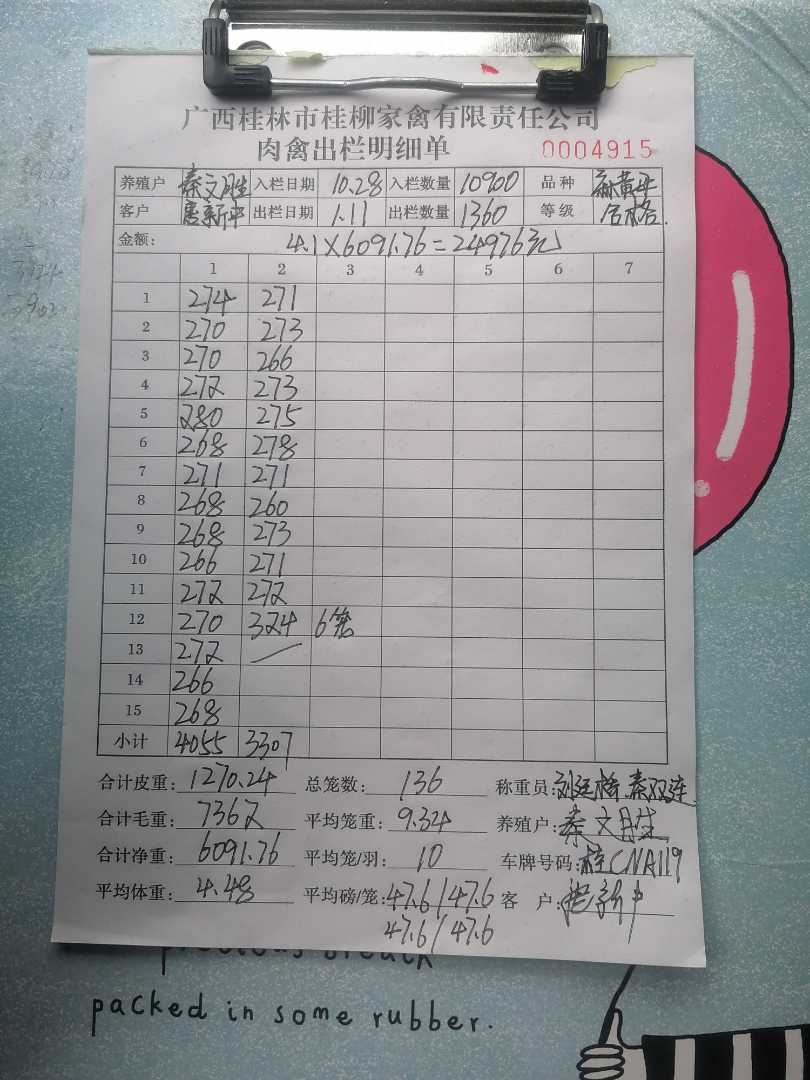 广西桂林市桂柳家禽有限责任公司
肉禽出栏明细单 0004915
养殖户 秦文胜 入栏日期 10.28 入栏数量 10900 品种 麻黄
客户 唐新 出栏日期 1.11 出栏数量 1360 等级 合格
金额: 4.1×6091.76=24976元
1 2 3 4 5 6 7
1 274 271
2 270 273
3 270 266
4 272 273
5 280 275
6 268 278
7 271 271
8 268 260
9 268 273
10 266 271
11 272 272
12 270 324 6笼
13 272 —
14 266
15 268
小计 4055 3307
合计皮重: 1270.24 总笼数: 136 称重员: 刘廷 秦双连
合计毛重: 7362 平均笼重: 9.34 养殖户: 秦文胜
合计净重: 6091.76 平均笼/羽: 10 车牌号码: 桂CNA119
平均体重: 4.48 平均磅/笼: 47.6/47.6 客 户:
47.6/47.6
packed in some rubber.